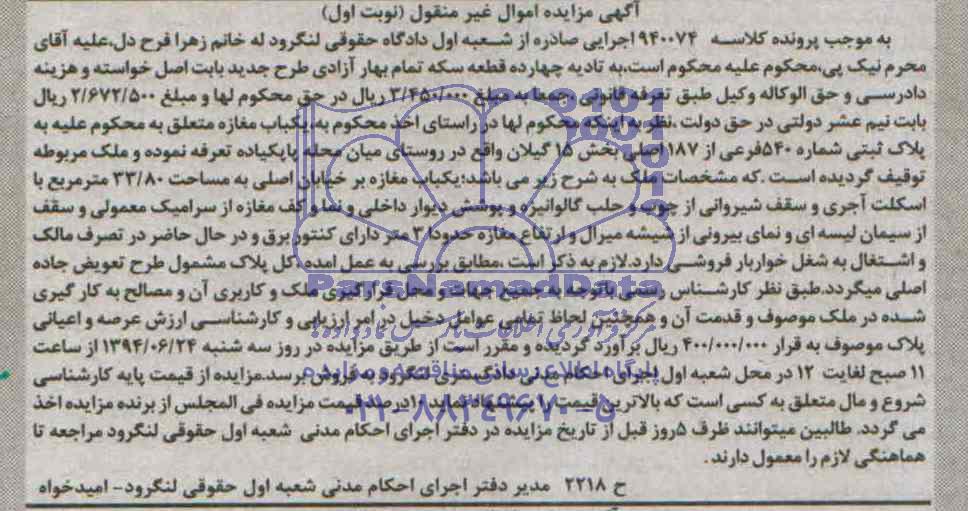 آگهی مزایده اموال غیر منقول (نوبت اول)
به موجب پرونده کلاسه ۹۴۰۰۷۴\اجرایی صادره از شعبه اول دادگاه حقوقی لنگرود له خانم زهرا فرح دل،علیه آقای
محرم نیک پی،محکوم علیه محکوم است،به تادیه چهارده قطعه سکه تمام بهار آزادی طرح جدید بابت اصل خواسته و هزینه
دادرسی و حق الوکاله وکیل طبق تعرفه قانونی وجمعا به مبلغ ۳/۴۵۰/۰۰۰ ریال در حق محکوم لها و مبلغ ۲/۶۷۲/۵۰۰ ریال
بابت نیم عشر دولتی در حق دولت ،نظر به اینکه محکوم لها در راستای اخذ محکوم به ،یکباب مغازه متعلق به محکوم علیه به
پلاک ثبتی شماره ۵۴۰فرعی از ۱۸۷اصلی بخش ۱۵ گیلان واقع در روستای میان محله پاپکیاده تعرفه نموده و ملک مربوطه
توقیف گردیده است .که مشخصات ملک به شرح زیر می باشد؛یکباب مغازه بر خیابان اصلی به مساحت ۳۳/۸۰ مترمربع با
اسکلت آجری و سقف شیروانی از چوب و حلب گالوانیزه و پوشش دیوار داخلی و نما و کف مغازه از سرامیک معمولی و سقف
از سیمان لیسه ای و نمای بیرونی از شیشه میرال و ارتفاع مغازه حدودا ۳ متر دارای کنتور برق و در حال حاضر در تصرف مالک
و اشتغال به شغل خواربار فروشی دارد.لازم به ذکر است ،مطابق بررسی به عمل امده ،کل پلاک مشمول طرح تعویض جاده
اصلی میگردد.طبق نظر کارشناس رسمی باتوجه به جمیع جهات و محل قرارگیری ملک و کاربری آن و مصالح به کار گیری
شده در ملک موصوف و قدمت آن و همچنین لحاظ تمامی عوامل دخیل در امر ارزیابی و کارشناسی ارزش عرصه و اعیانی
پلاک موصوف به قرار ۴۰۰/۰۰۰/۰۰۰ ریال برآورد گردیده و مقرر است از طریق مزایده در روز سه شنبه ۱۳۹۴/۰۶/۲۴ از ساعت
۱۱ صبح لغایت ۱۲ در محل شعبه اول اجرای احکام مدنی دادگستری لنگرود به فروش برسد.مزایده از قیمت پایه کارشناسی
شروع و مال متعلق به کسی است که بالاترین قیمت را پیشنهاد نماید.۱۰درصد قیمت مزایده فی المجلس از برنده مزایده اخذ
می گردد. طالبین میتوانند ظرف ۵روز قبل از تاریخ مزایده در دفتر اجرای احکام مدنی شعبه اول حقوقی لنگرود مراجعه تا
هماهنگی لازم را معمول دارند.
ح ۲۲۱۸ مدیر دفتر اجرای احکام مدنی شعبه اول حقوقی لنگرود- امیدخواه
ParsNamadData
مرکز فرآوری اطلاعات پارس نماد داده ها
پایگاه اطلاع رسانی مناقصه و مزایده
۰۲۱-۸۸۳۴۹۶۷۰-۵